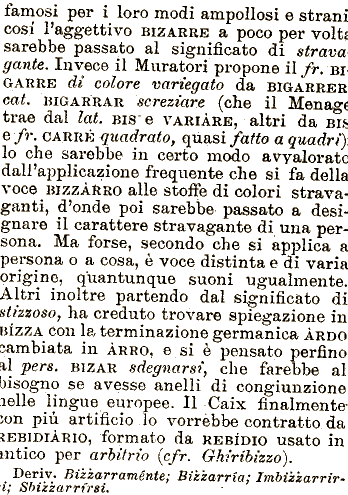 famosi per i loro modi ampollosi e strani
cosí l'aggettivo BIZARRE a poco per volta
sarebbe passato al significato di strava-
gante. Invece il Muratori propone il fr. BI-
GARRE di colore variegato da BIGARRER
cat. BIGARRAR screziare (che il Menage
trae dal lat. BIS e VARIÀRE, altri da BIS
e fr. CARRÈ quadrato, quasi fatto a quadri)
lo che sarebbe in certo modo avvalorato
dall'applicazione frequente che si fa della
voce BIZZÀRRO alle stoffe di colori strava-
ganti, d'onde poi sarebbe passato a desi-
gnare il carattere stravagante di una per-
sona. Ma forse, secondo che si applica a
persona o a cosa, è voce distinta e di varia
origine, quantunque suoni ugualmente.
Altri inoltre partendo dal significato di
stizzoso, ha creduto trovare spiegazione in
BÍZZA con la terminazione germanica ÀRDO
cambiata in ÀRRO, e si è pensato perfino
al pers. BIZAR sdegnarsi, che farebbe al
bisogno se avesse anelli di congiunzione
nelle lingue europee. Il Caix finalmente
con piú artificio lo vorrebbe contratto da
REBIDIÀRIO, formato da REBÍDIO usato in
antico per arbitrio (cfr. Ghiribizzo).
Deriv. Bizzarraménte; Bizzarría; Imbizzarrir-
si; Sbizzarrírsi.